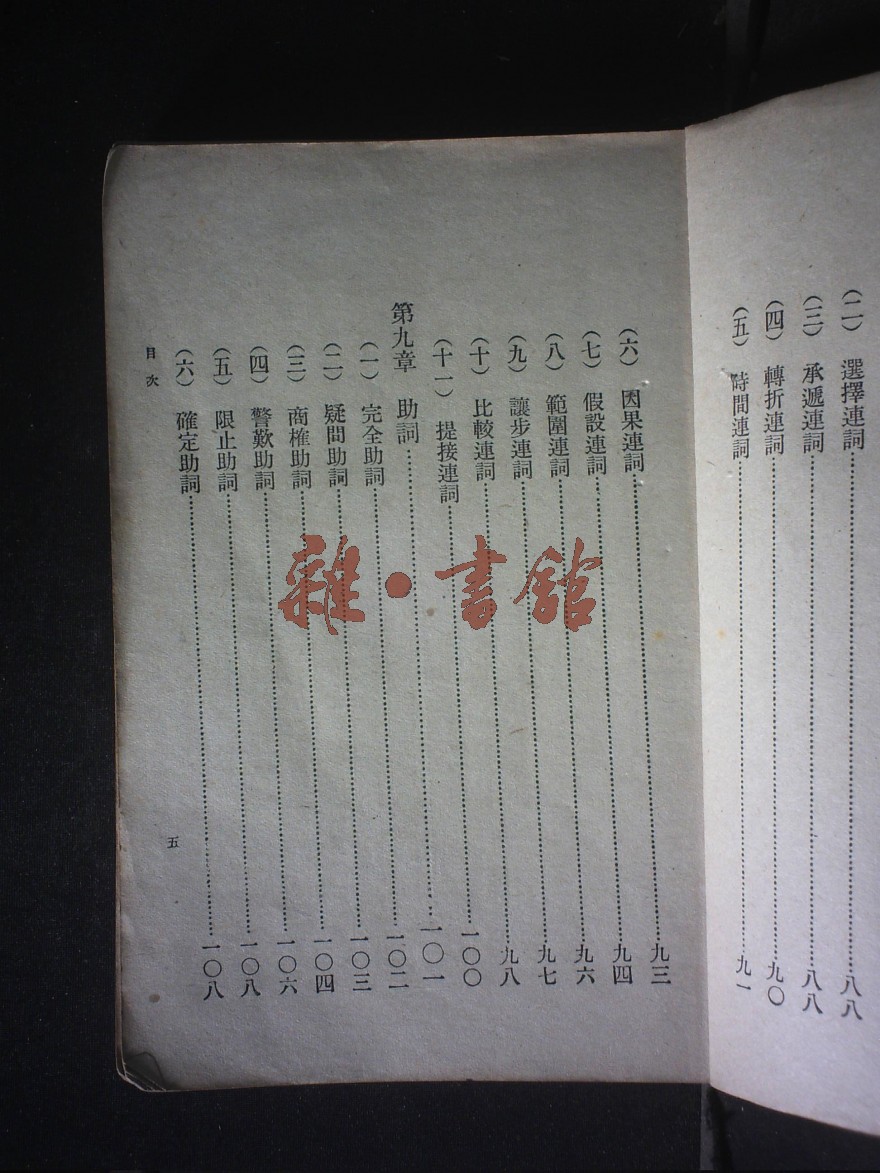 (二) 選擇連詞……八八
(三) 承遞連詞……八八
(四) 轉折連詞……九〇
(五) 時間連詞……九一
(六) 因果連詞……九三
(七) 假設連詞……九四
(八) 範圍連詞……九六
(九) 讓步連詞……九七
(十) 比較連詞……九八
(十一) 提接連詞……一〇〇
第九章 助詞……一〇一
(一) 完全助詞……一〇二
(二) 疑問助詞……一〇三
(三) 商榷助詞……一〇四
(四) 警歎助詞……一〇六
(五) 限止助詞……一〇八
(六) 確定助詞……一〇八
目次
五
雜·書館